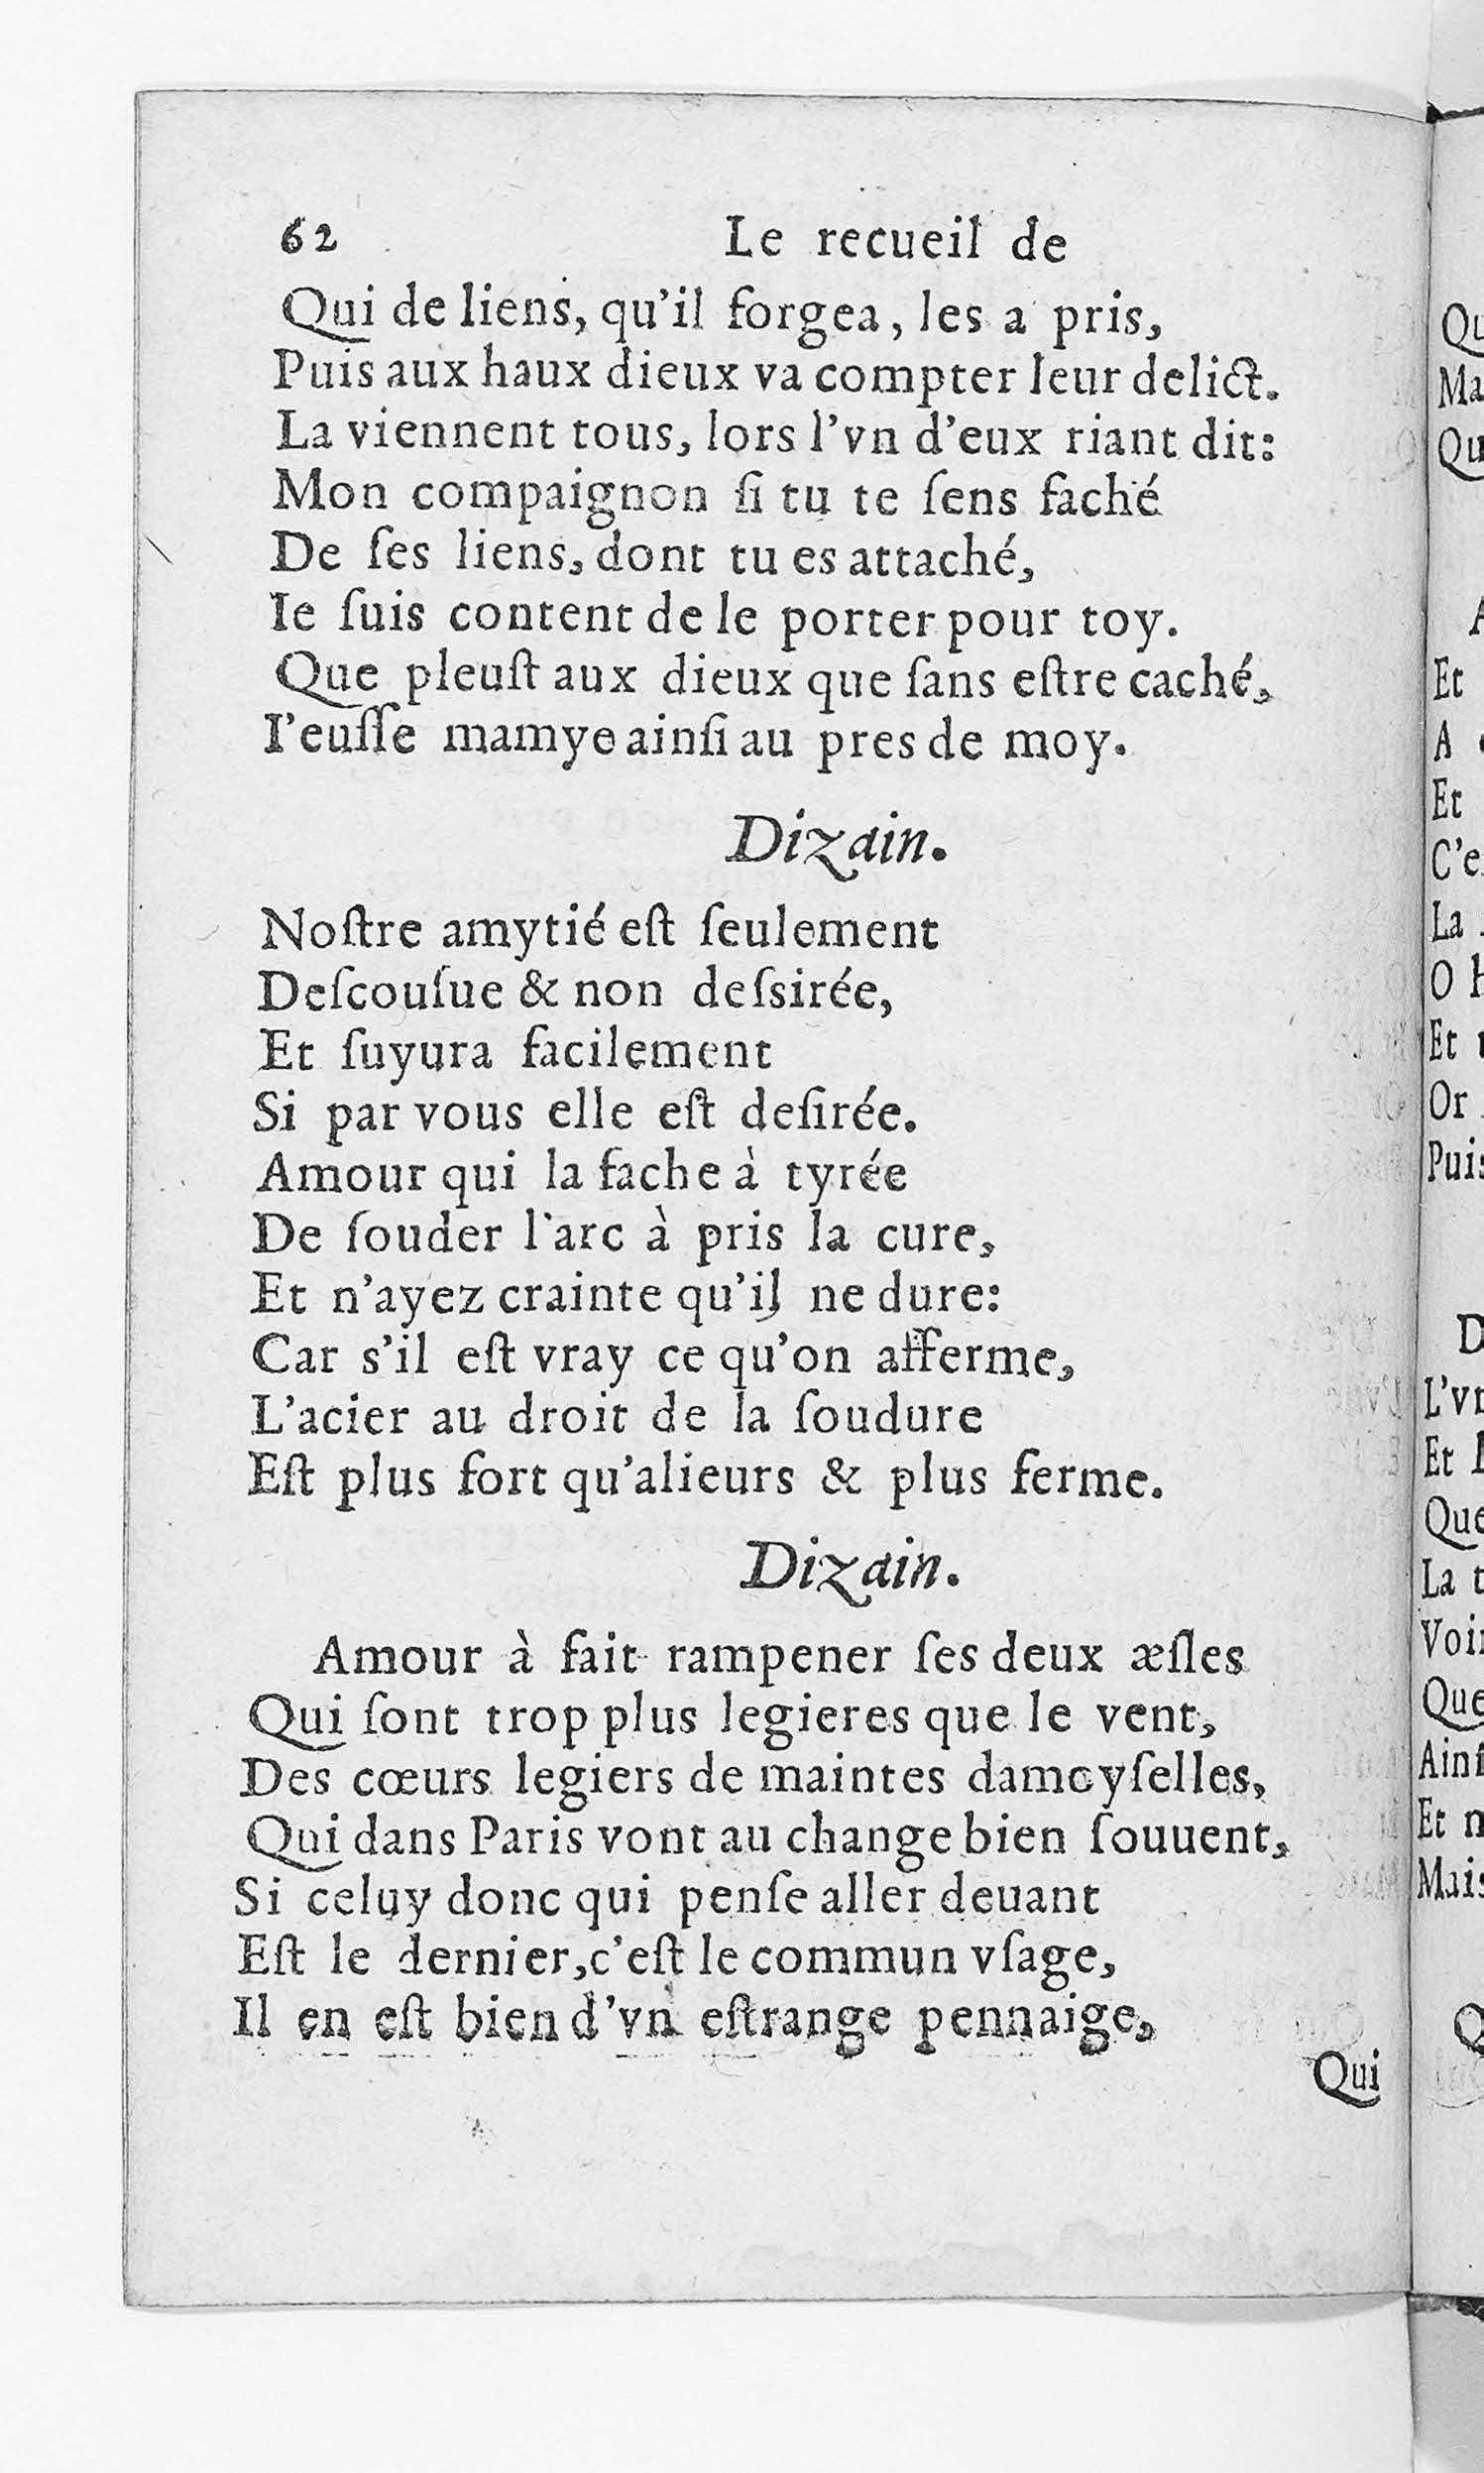 62 Le recueil de
Qui de liens, qu'il forgea, les a pris,
Puis aux haux dieux va compter leur delict.
La viennent tous, lors l'vn d'eux riant dit:
Mon compaignon ſi tu te ſens faché
De ſes liens, dont tu es attaché,
Ie ſuis content de le porter pour toy.
Que pleuſt aux dieux que ſans eſtre caché,
I'euſſe mamye ainſi au pres de moy.
Dizain.
Noſtre amytié eſt ſeulement
Deſcouſue & non deſsirée,
Et ſuyura facilement
Si par vous elle eſt deſirée.
Amour qui la fache à tyrée
De ſouder l'arc à pris la cure,
Et n'ayez crainte qu'il ne dure:
Car s'il eſt vray ce qu'on afferme,
L'acier au droit de la ſoudure
Eſt plus fort qu'alieurs & plus ferme.
Dizain.
Amour à fait rampener ſes deux æſles
Qui ſont trop plus legieres que le vent,
Des cœurs legiers de maintes damoyſelles,
Qui dans Paris vont au change bien ſouuent,
Si celuy donc qui penſe aller deuant
Eſt le dernier, c'eſt le commun vſage,
Il en eſt bien d'vn eſtrange pennaige,
Qui
Et
A
Et
La
O
Et
Or
Et
Que
La
Que
Et